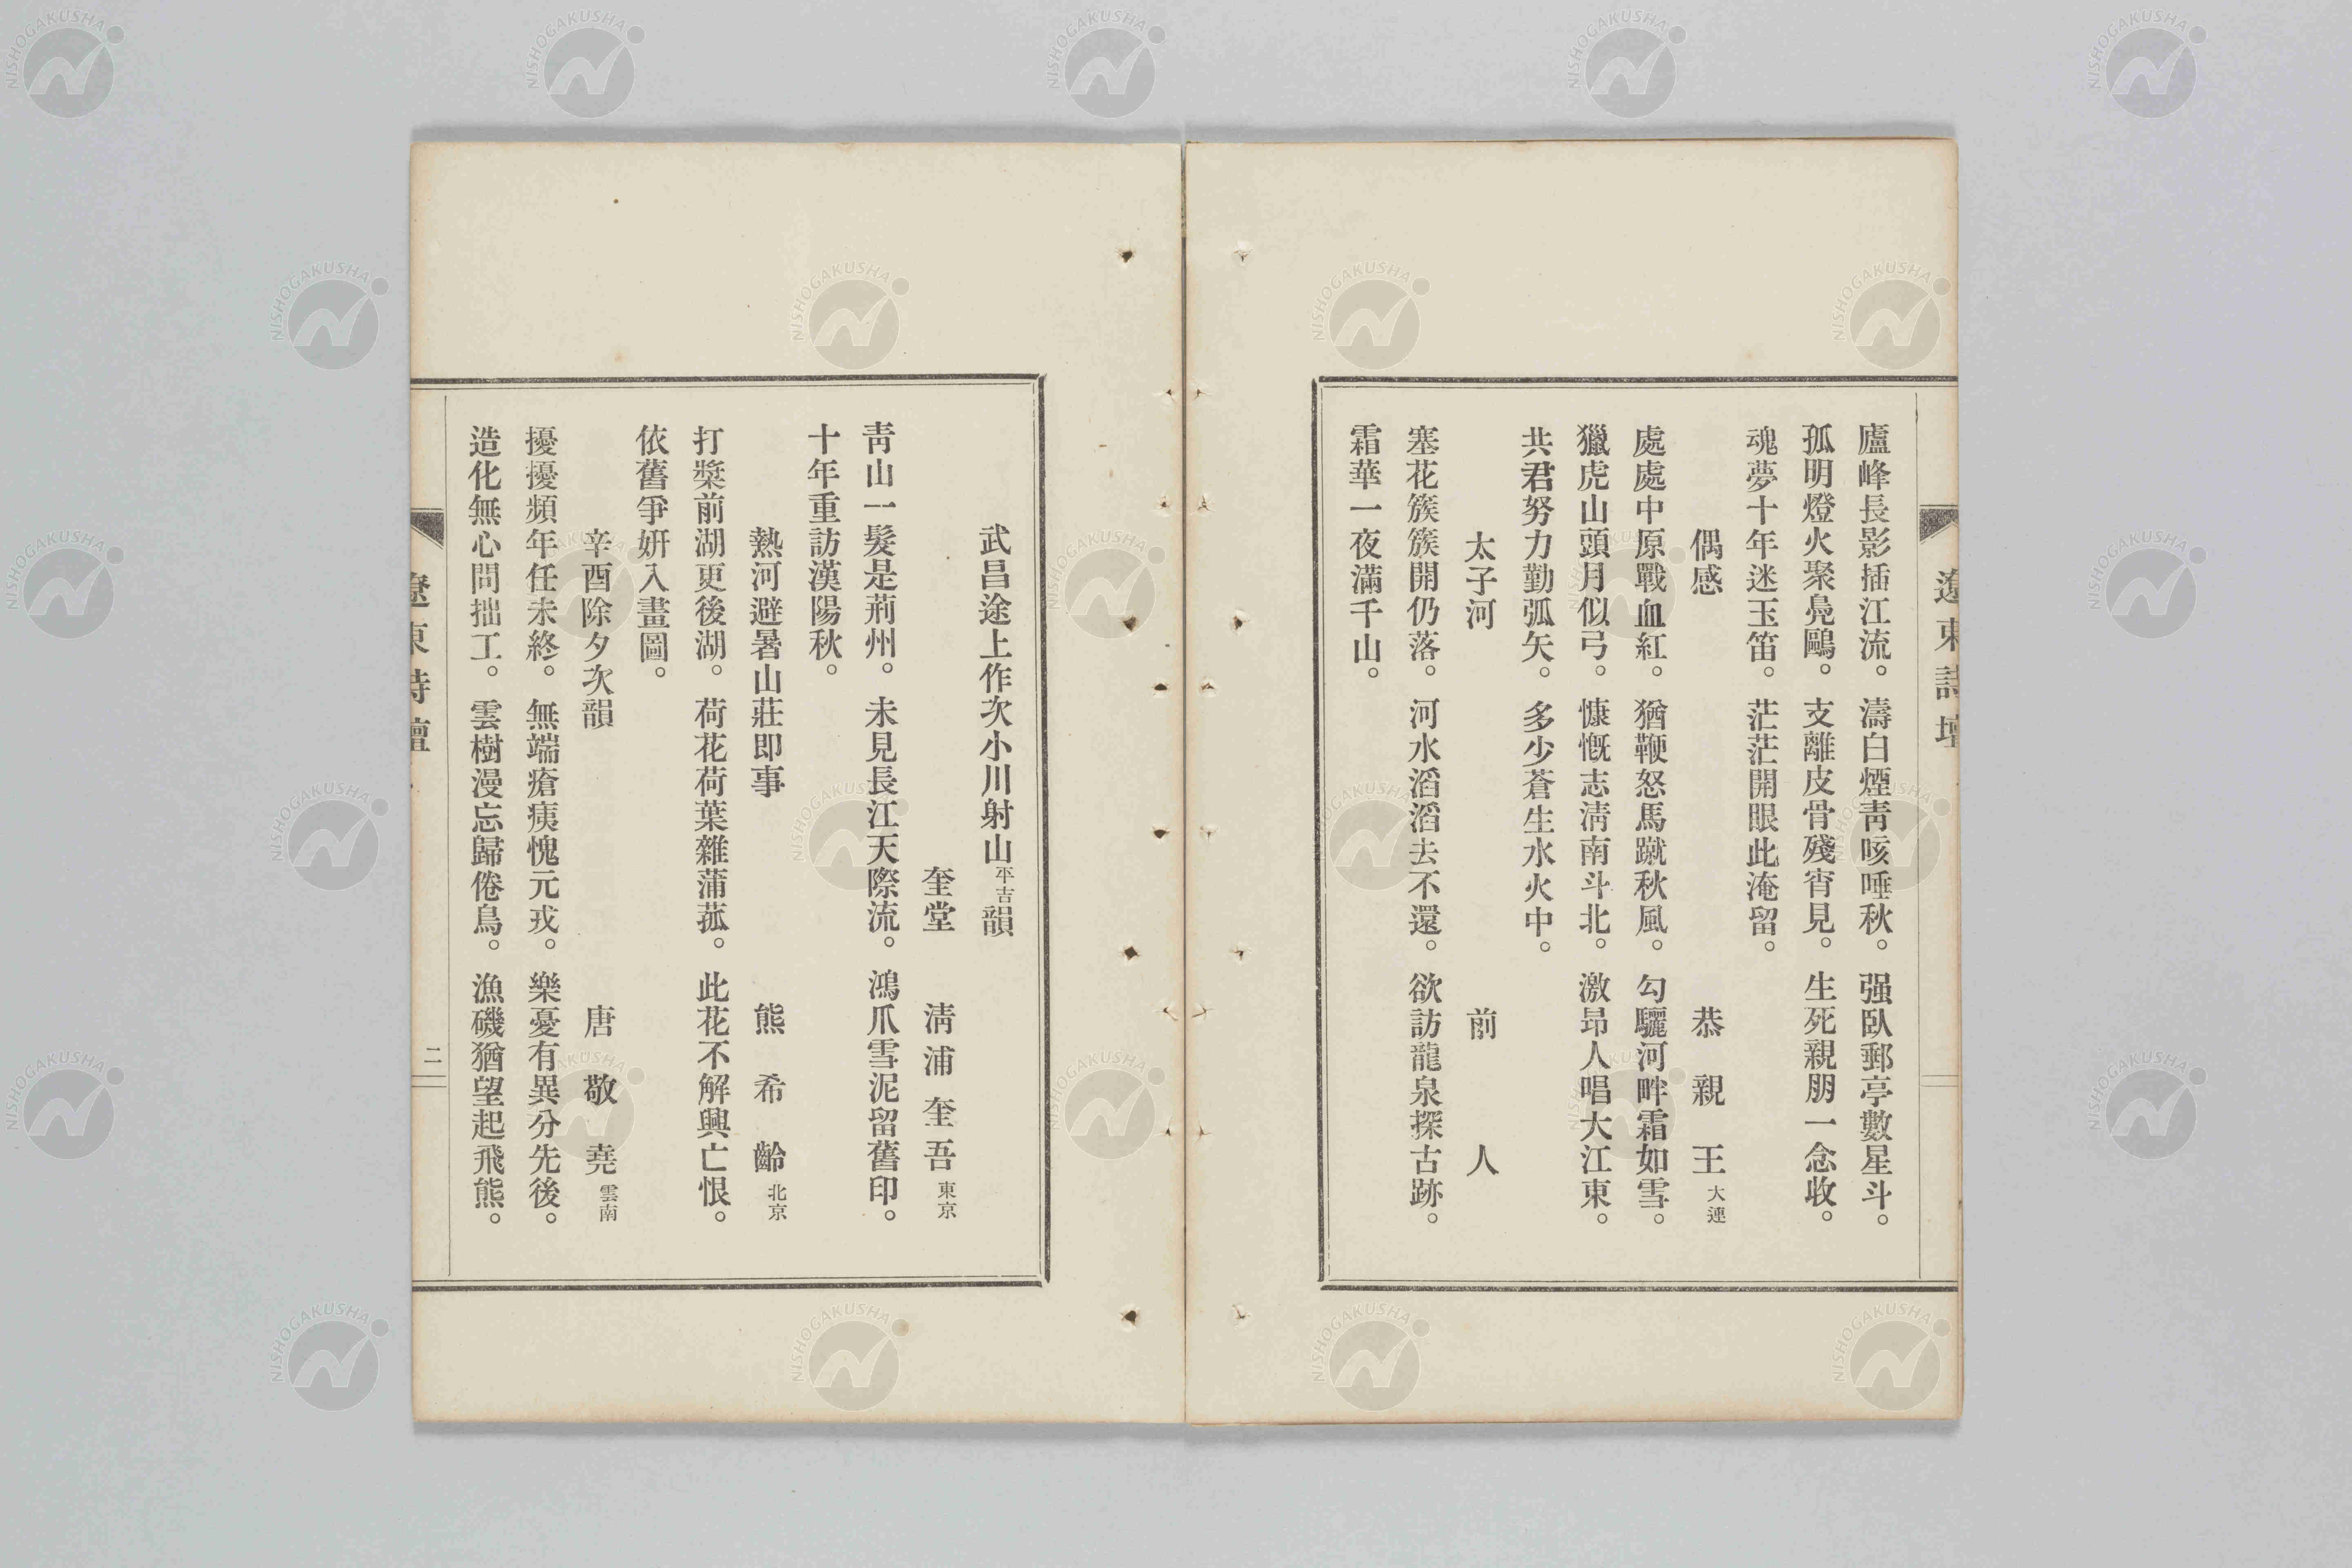 遼東詩壇
廬峰長影插江流。濤白煙靑咳唾秋。强臥郵亭數星斗。
孤明燈火聚鳧鷗。支離皮骨殘宵見。生死親朋一念收。
魂夢十年迷玉笛。茫茫開眼此淹留。
偶感　恭親王 大連
處處中原戰血紅。猶鞭怒馬蹴秋風。勾驪河畔霜如雪。
獵虎山頭月似弓。慷慨志淸南斗北。激昻人唱大江東。
共君努力勤弧矢。多少蒼生水火中。
太子河　前人
塞花簇簇開仍落。河水滔滔去不還。欲訪龍泉探古跡。
霜華一夜滿千山。
武昌途上作次小川射山平吉韻
奎堂　淸浦奎吾 東京
靑山一髮是荊州。未見長江天際流。鴻爪雪泥留舊印。
十年重訪漢陽秋。
熱河避暑山莊即事　熊希齡 北京
打槳前湖更後湖。荷花荷葉雜蒲菰。此花不解興亡恨。
依舊爭姸入畫圖。
辛酉除夕次韻　唐敬堯 雲南
擾擾頻年任未終。無端瘡痍愧元戎。樂憂有異分先後。
造化無心問拙工。雲樹漫忘歸倦鳥。漁磯猶望起飛熊。
遼東詩壇
二
NISHOGAKUSHA